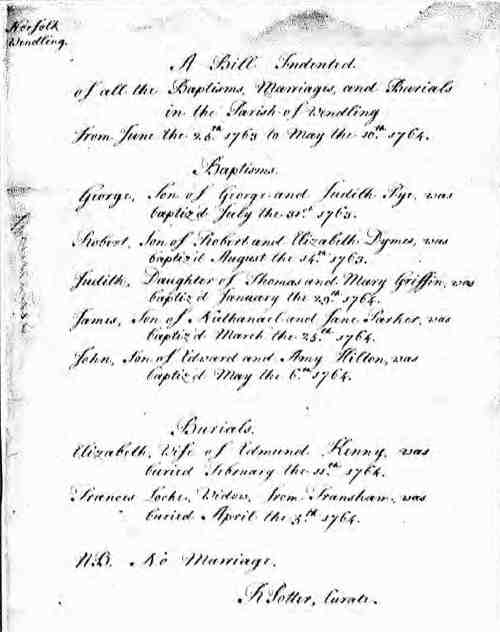 Norfolk
Wendling.
A Bill Indented
of all the Baptisms, Marriages, and Burials
in the Parish of Wendling
from June the 25th 1763 to May the 10th 1764.
Baptisms.
George, Son of George and Judith Pye, was
baptiz'd July the 31st 1763.
Robert, Son of Robert and Elizabeth Dymes, was
baptiz'd August the 14th 1763.
Judith, Daughter of Thomas and Mary Griffin, was
baptiz'd January the 29th 1764.
James, Son of Nathanael and Jane Parker, was
baptiz'd March the 25th 1764.
John, Son of Edward and Amy Hilton, was
baptiz'd May the 6th 1764.
Burials.
Elizabeth, Wife of Edmund Kenny, was
buried February the 11th 1764.
Frances Locke, Widow, from Fransham, was
buried April the 3th 1764.
N.B. No Marriage.
Potter, Curate.